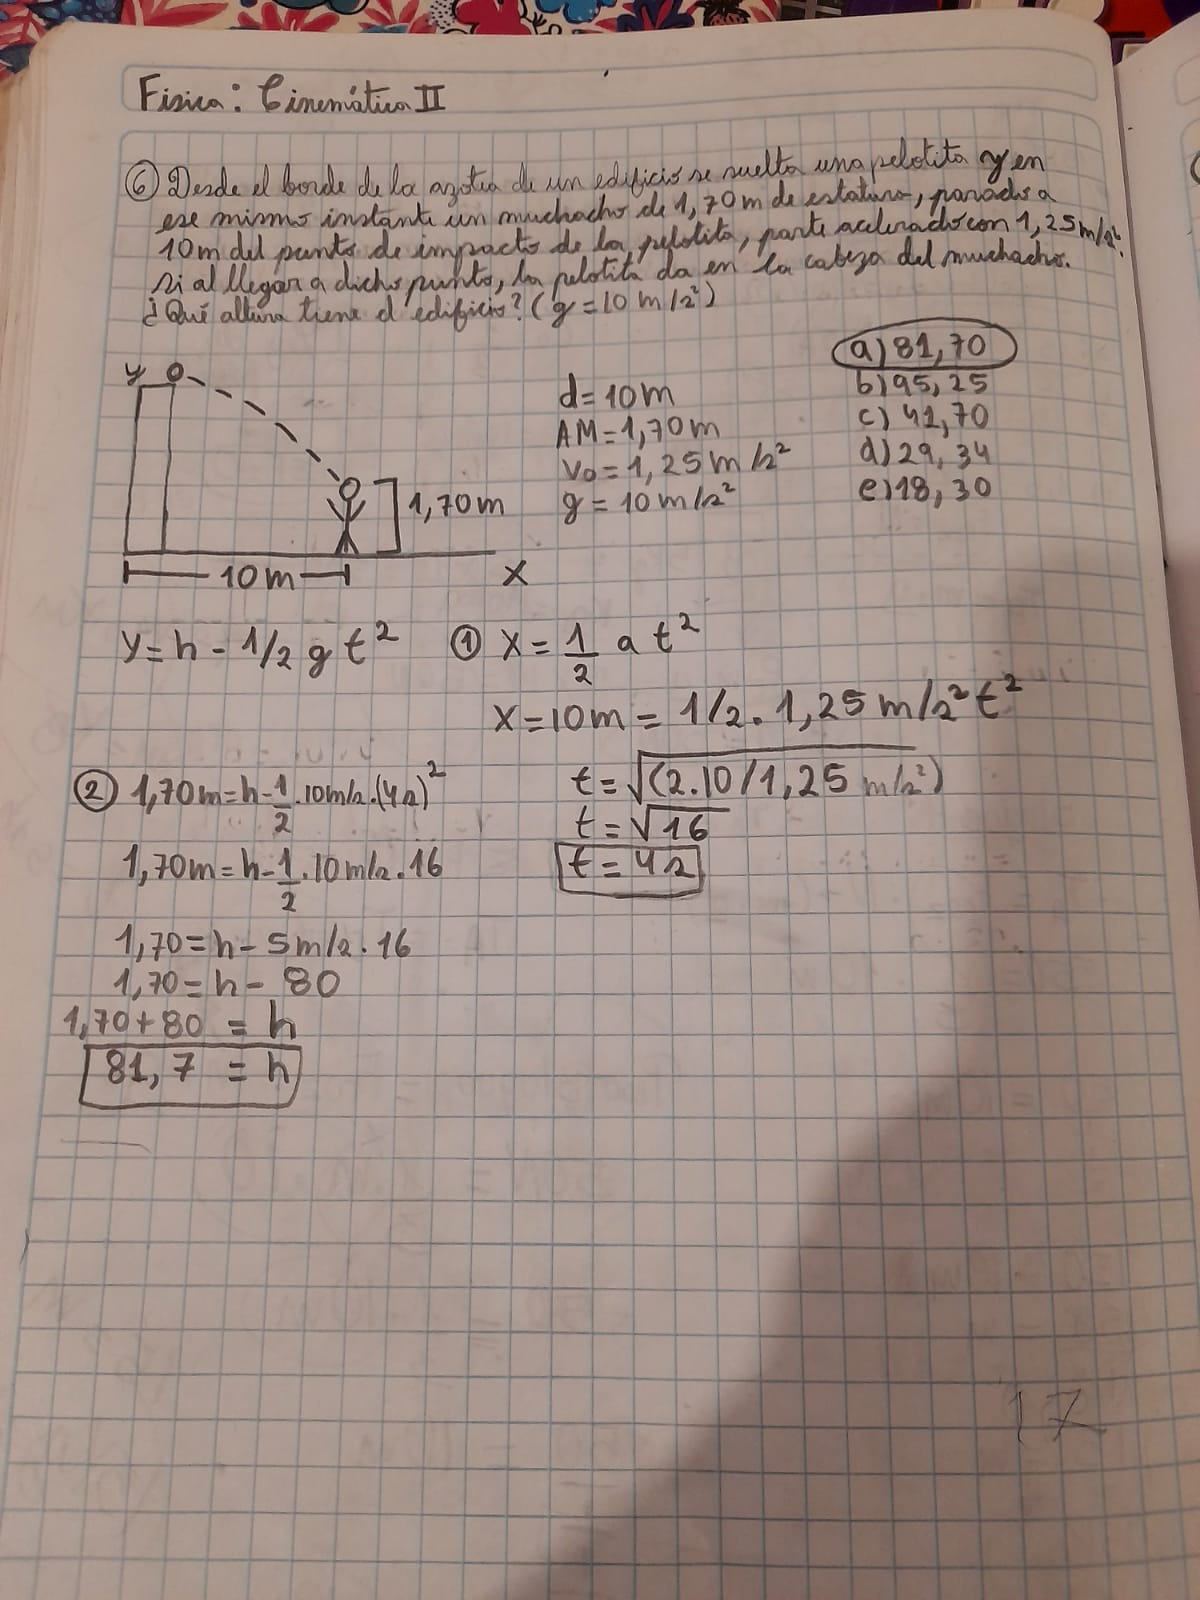 Fisica: Cinemática II
⑥ Desde el borde de la azotea de un edificio se suelta una pelotita y en
ese mismo instante un muchacho de 1,70m de estatura, parado a
10m del punto de impacto de la pelotita, parte acelerado con 1,25m/s².
si al llegar a dicho punto, la pelotita da en la cabeza del muchacho.
¿Qué altura tiene el edificio? (g=10 m/s²)
a) 81,70
b) 95,25
c) 41,70
d) 29,34
e) 18,30
d=10m
AM=1,70m
Vo=1,25m/s²
g=10m/s²
y
1,70m
10m
X
y=h-1/2 g t²
① X = 1/2 a t²
X=10m = 1/2 . 1,25 m/s² t²
t=√(2.10/1,25 m/s²)
t=√16
t=4s
② 1,70m=h-1/2.10m/s.(4s)²
1,70m=h-1/2.10m/s.16
1,70=h-5m/s.16
1,70=h-80
1,70+80 = h
81,7 = h
17